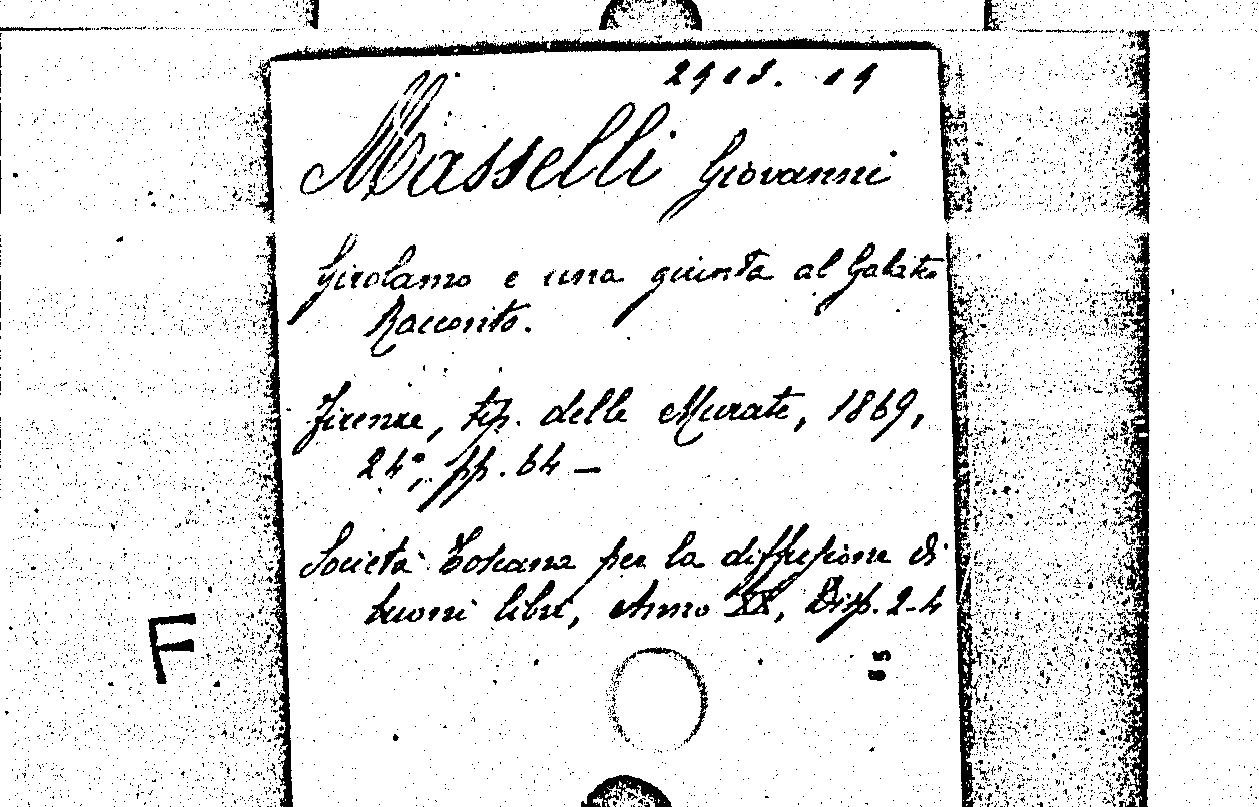 Masselli Giovanni
Girolamo e una giunta al Galateo
Racconto.
Firenze, tip. delle Murate, 1869,
24°, pp. 64 —
Società Toscana per la diffusione di
buoni libri, Anno XX, Disp. 2-4
F